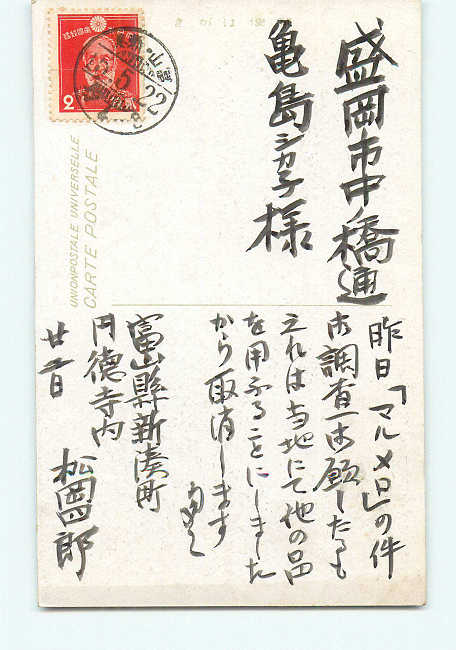 盛岡市中ノ橋通
亀島シカ子様
昨日「マルメロ」の件
御調査御願したるも
それは当地にて他の品
を用ふることにしました
から取消します
富山縣新湊町
円徳寺内
松岡四郎
きがは便郵
UNION POSTALE UNIVERSELLE
CARTE POSTALE
2
5
22